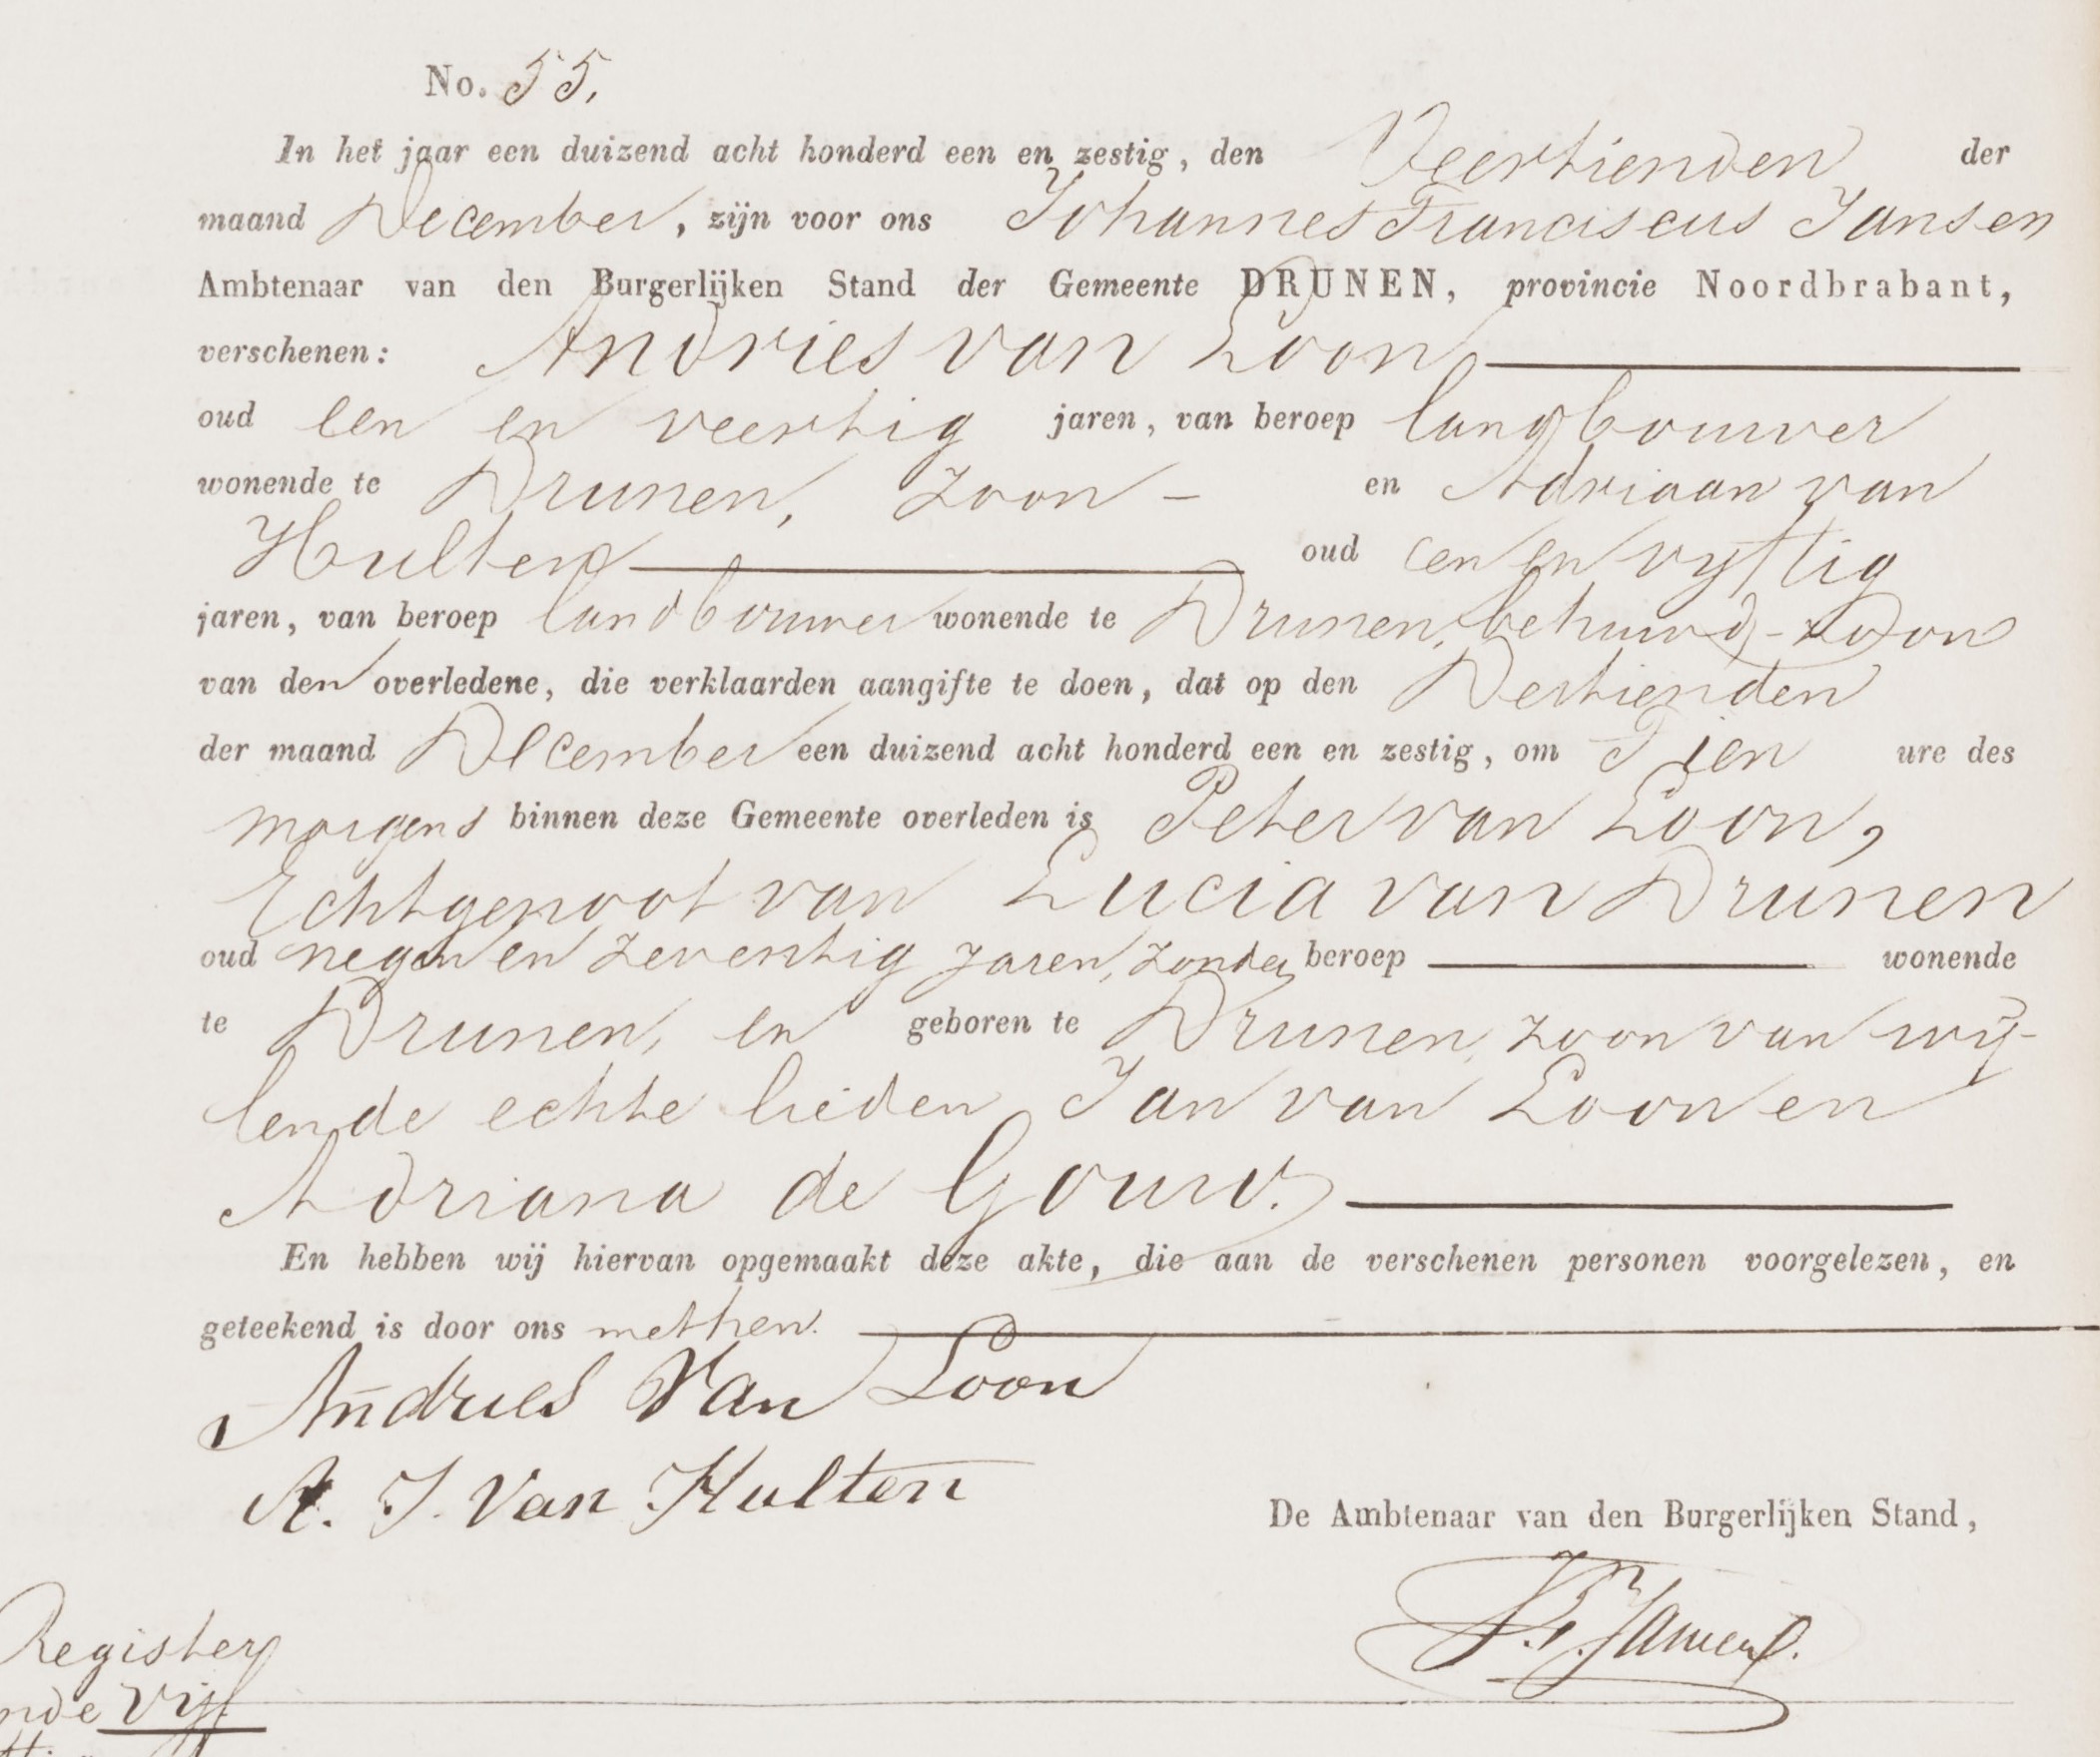 No. 55.
In het jaar een duizend acht honderd een en zestig, den Veertienden der
maand December, zijn voor ons Johannes Franciscus Jansen
Ambtenaar van den Burgerlijken Stand der Gemeente DRUNEN, provincie Noordbrabant,
verschenen: Andries van Loon
oud een en veertig jaren, van beroep landbouwer
wonende te Drunen, zoon - en Adriaan van
Hulten oud een en vyftig
jaren, van beroep landbouwer wonende te Drunen, behuwd-zoon
van den overledene, die verklaarden aangifte te doen, dat op den Dertienden
der maand December een duizend acht honderd een en zestig, om Tien ure des
morgens binnen deze Gemeente overleden is Peter van Loon,
Echtgenoot van Lucia van Drunen
oud negen en zeventig jaren, zonder beroep wonende
te Drunen, en geboren te Drunen, zoon van wij-
lende echte lieden Jan van Loon en
Adriana de Gouw.
En hebben wij hiervan opgemaakt deze akte, die aan de verschenen personen voorgelezen, en
geteekend is door ons met hen.
Andries Van Loon
A. J. Van Hulten
De Ambtenaar van den Burgerlijken Stand,
Jansen
Register
nde Vijf